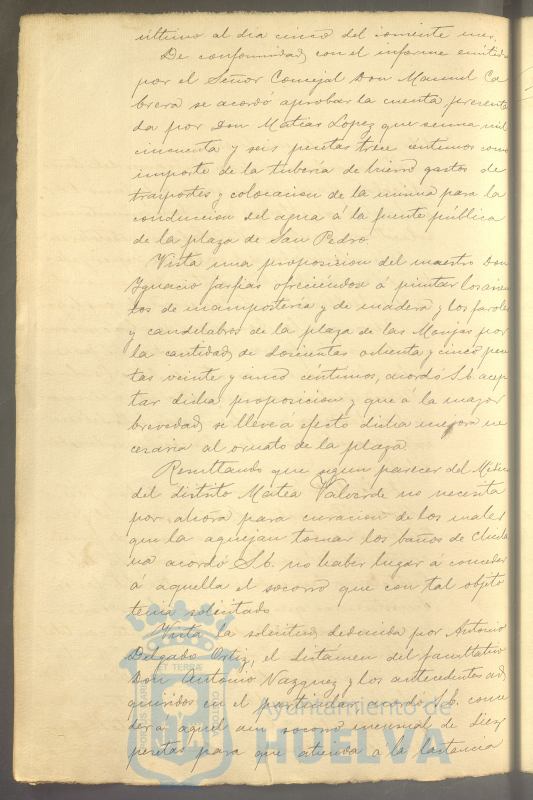 último al dia cinco del corriente mes.
De conformidad con el informe emitido
por el Señor Concejal Don Manuel Ca
brera se acordó aprobar la cuenta presenta
da por Don Matias Lopez que suma mil
cincuenta y seis pesetas trece céntimos como
importe de la tubería de hierro gastos de
trasportes y colocacion de la misma para la
conduccion del agua á la fuente pública
de la plaza de San Pedro.
Vista una proposicion del maestro Don
Ygnacio farfias ofreciendose á pintar los asien
tos de mamposteria y de madera y los faroles
y candelabros de la plaza de las Monjas por
la cantidad de doscientas ochenta y cinco pese
tas veinte y cinco céntimos, acordó S.E. acep
tar dicha proposicion y que á la mayor
brevedad se lleve a efecto dicha mejora ne
cesaria al ornato de la plaza
Resultando que segun parecer del Médico
del distrito Matea Valverde no necesita
por ahora para curacion de los males
que la aquejan tomar los baños de Chicla
na acordó S.E. no haber lugar á conceder
á aquella el socorro que con tal objeto
tenia solicitado
Vista la solicitud deducida por Antonio
Delgado Ortiz, el dictámen del facultativo
Don Antonio Vazquez y los antecedentes ad
quiridos en el particular acordó S.E. conce
der á aquel un socorro mensual de diez
pesetas para que atienda á la lactancia
Ayuntamiento de
HUELVA